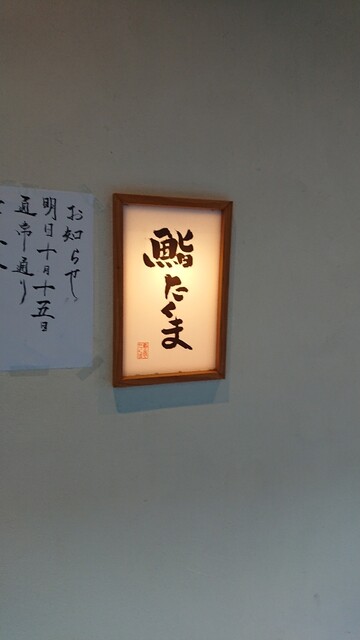 お知らせ
明日十月十五日
通常通り
鮨たくま